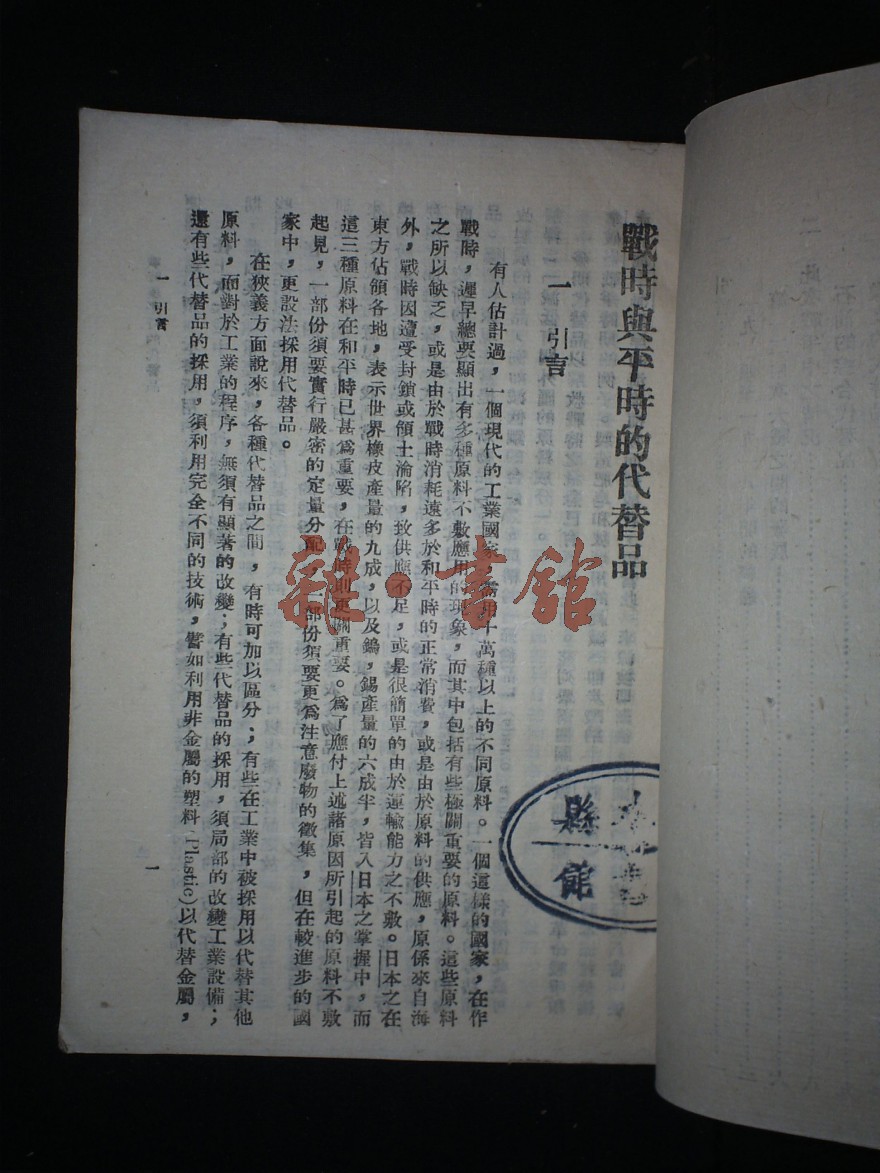 戰時與平時的代替品
一 引言
有人估計過，一個現代的工業國家，需用十萬種以上的不同原料。一個這樣的國家，在作
戰時，遲早總要顯出有多種原料不敷應用的現象，而其中包括有些極關重要的原料。這些原料
之所以缺乏，或是由於戰時消耗遠多於和平時的正常消費，或是由於原料的供應，原係來自海
外，戰時因遭受封鎖或領土淪陷，致供應不足，或是很簡單的由於運輸能力之不敷。日本之在
東方佔領各地，表示世界橡皮產量的九成，以及鎢，錫產量的六成半，皆入日本之掌握中，而
這三種原料在和平時已甚爲重要，在戰時則更關重要。爲了應付上述諸原因所引起的原料不敷
起見，一部份須要實行嚴密的定量分配，一部份須要更爲注意廢物的徵集，但在較進步的國
家中，更設法採用代替品。
在狹義方面說來，各種代替品之間，有時可加以區分；有些在工業中被採用以代替其他
原料，而對於工業的程序，無須有顯著的改變；有些代替品的採用，須局部的改變工業設備；
還有些代替品的採用，須利用完全不同的技術，譬如利用非金屬的塑料(Plastic)以代替金屬，
一 引言
一
縣
館
雜·書館